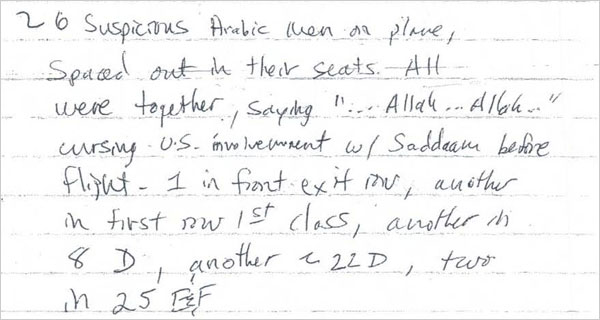 2 6 Suspicious Arabic men on plane,
Spaced out in their seats. All
were together, saying "... Allah ... Allah.."
cursing U.S. involvement w/ Saddaam before
flight - 1 in front exit row, another
in first row 1st class, another in
8 D, another 22D, two
in 25 E&F